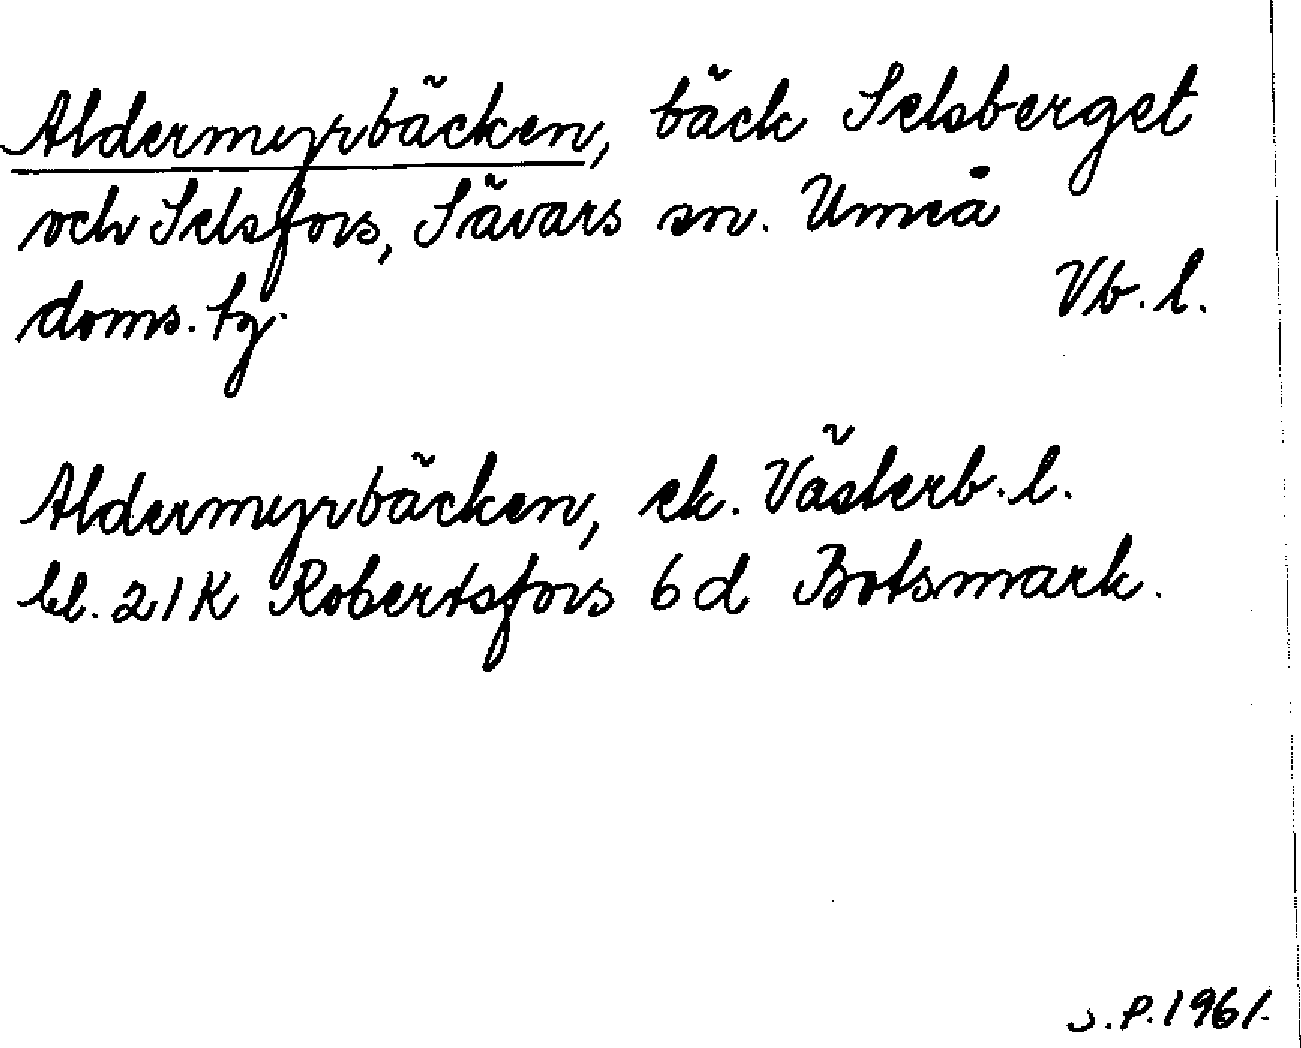 Aldermyrbäcken, bäck Selsberget
och Selsfors, Sävars sn. Umeå
doms. tg. Vb. l.
Aldermyrbäcken, ek. Västerb. l.
bl. 21K Robertsfors 6d Botsmark.
S.P. 1961.